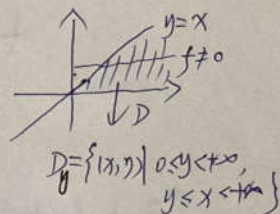 y=x
f≠0
D
D_y={(x,y)| 0≤y<+∞,
y≤x<+∞}